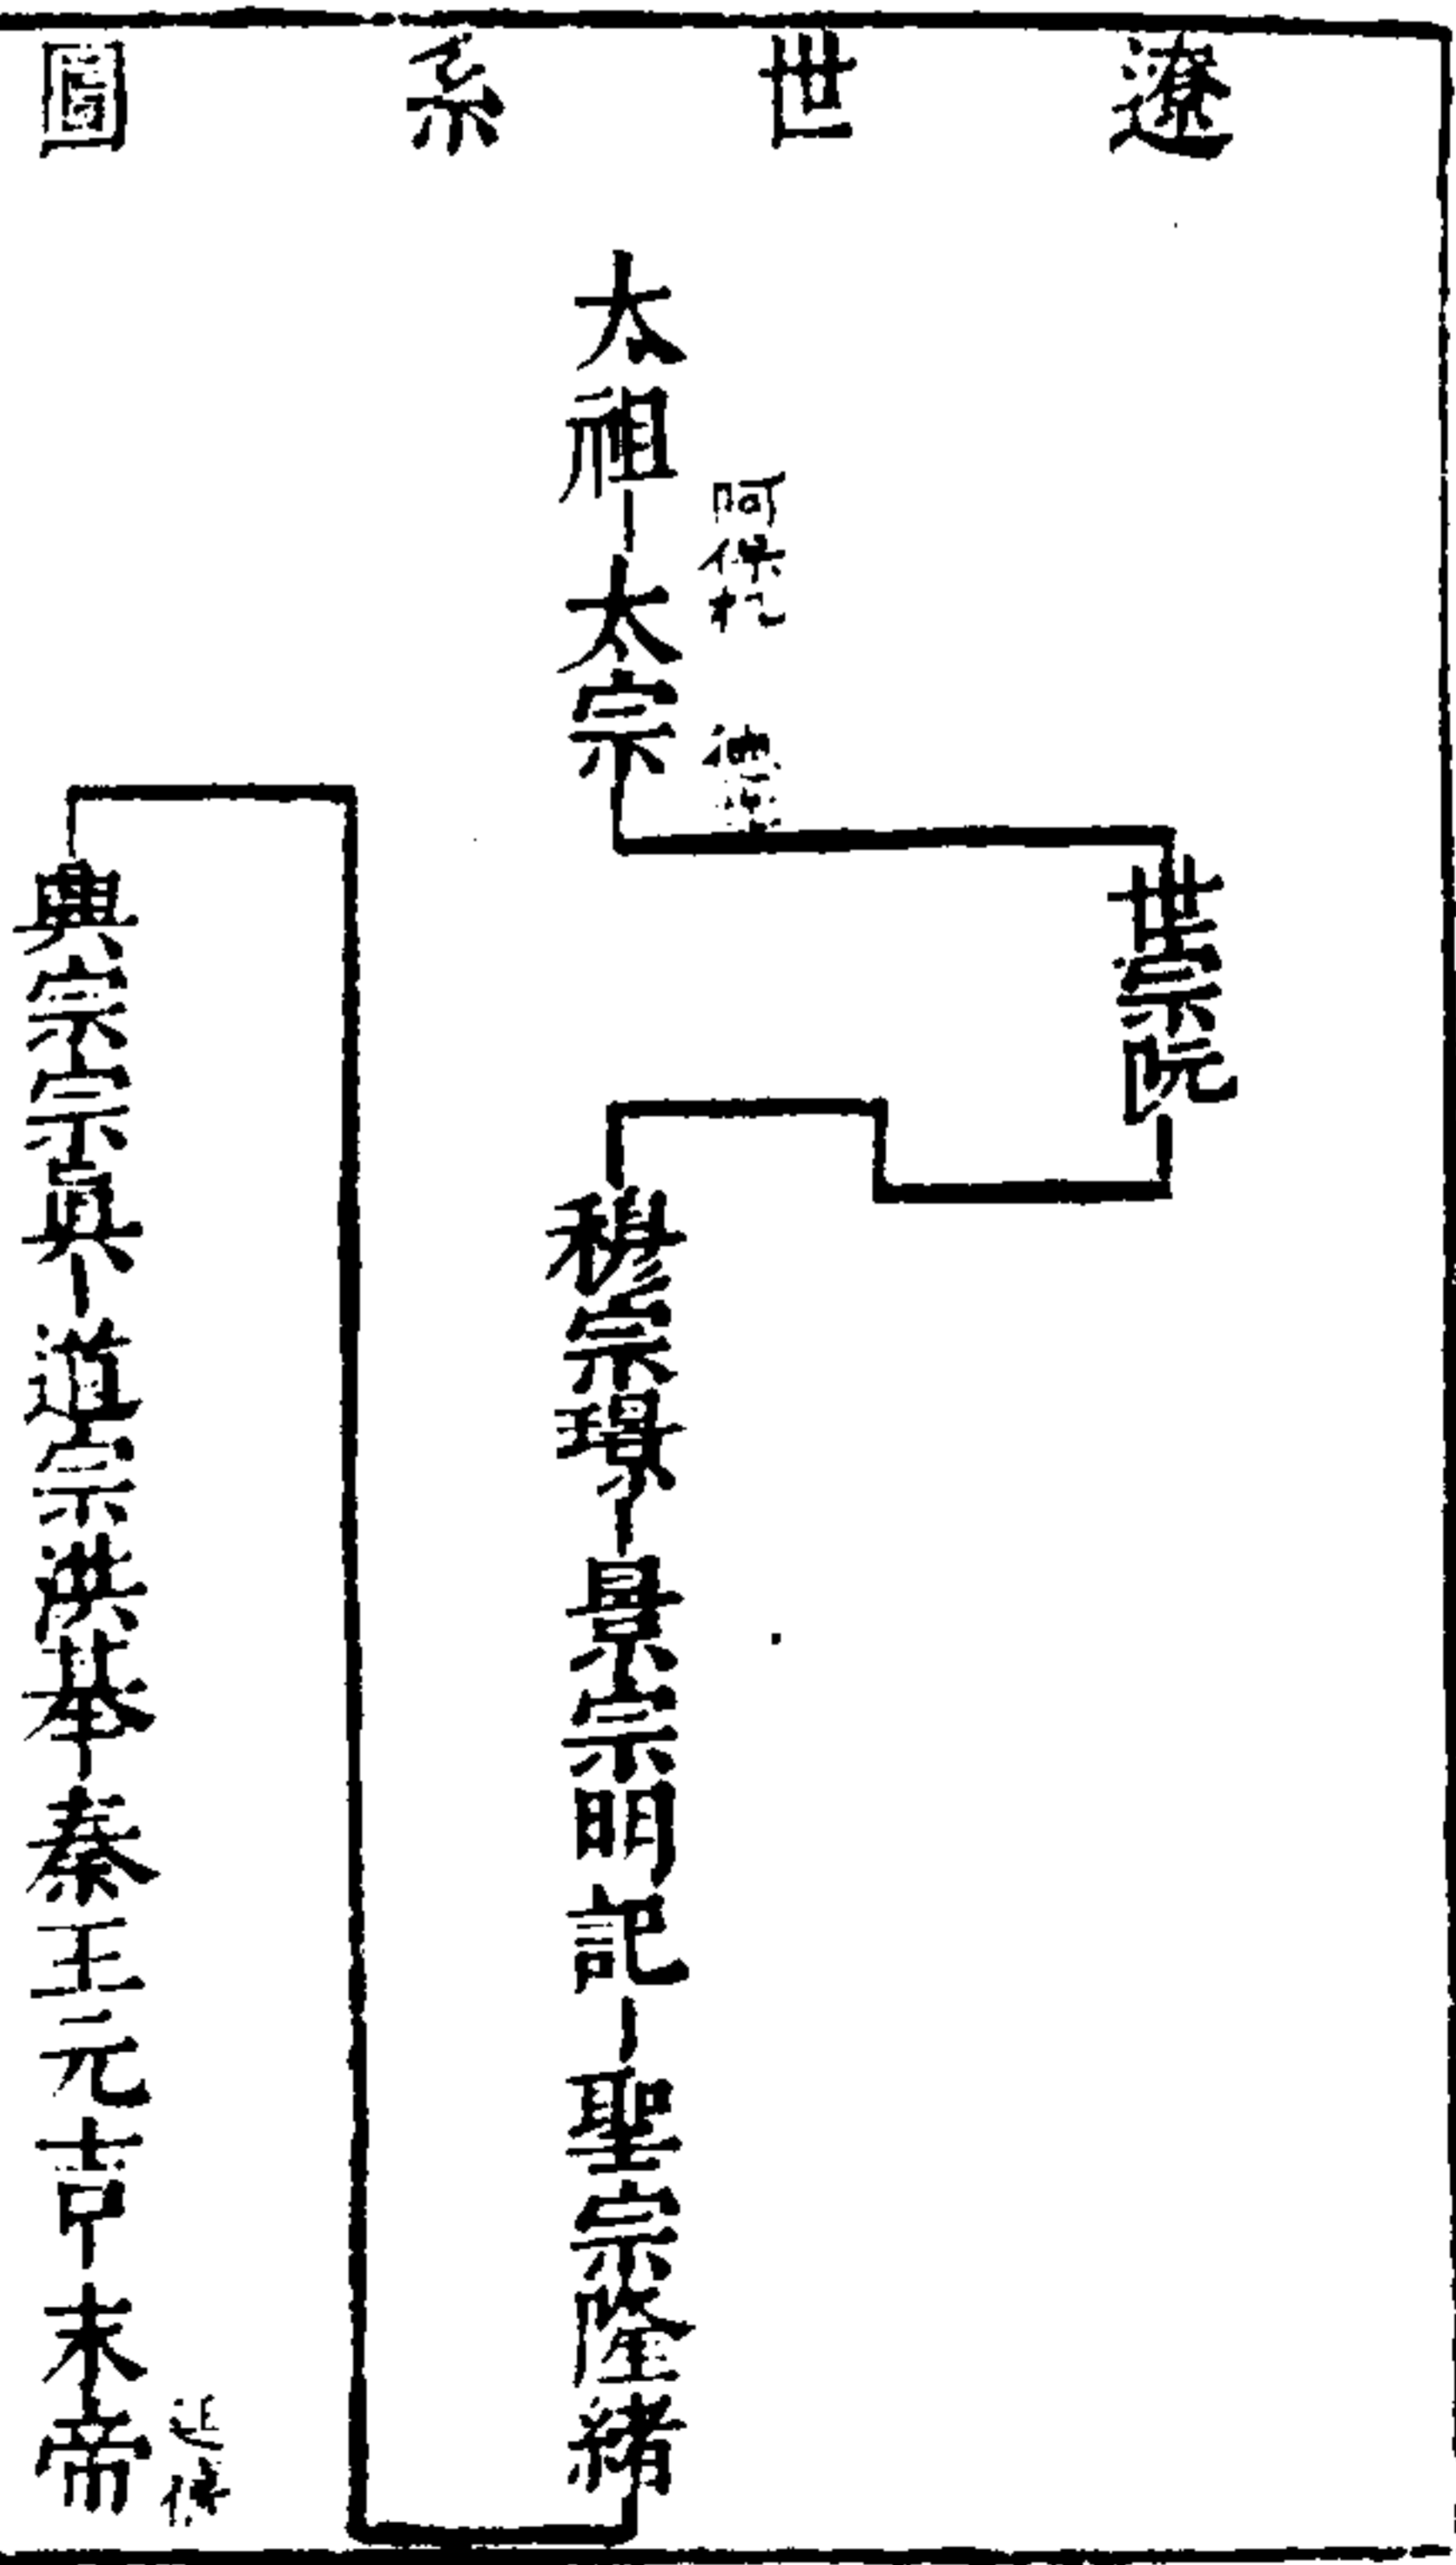 遼世系圖
太祖
阿保机
太宗
德
世宗阮
穆宗璟
景宗明記
聖宗隆緒
興宗宗眞
道宗洪基
秦王元吉
末帝
延